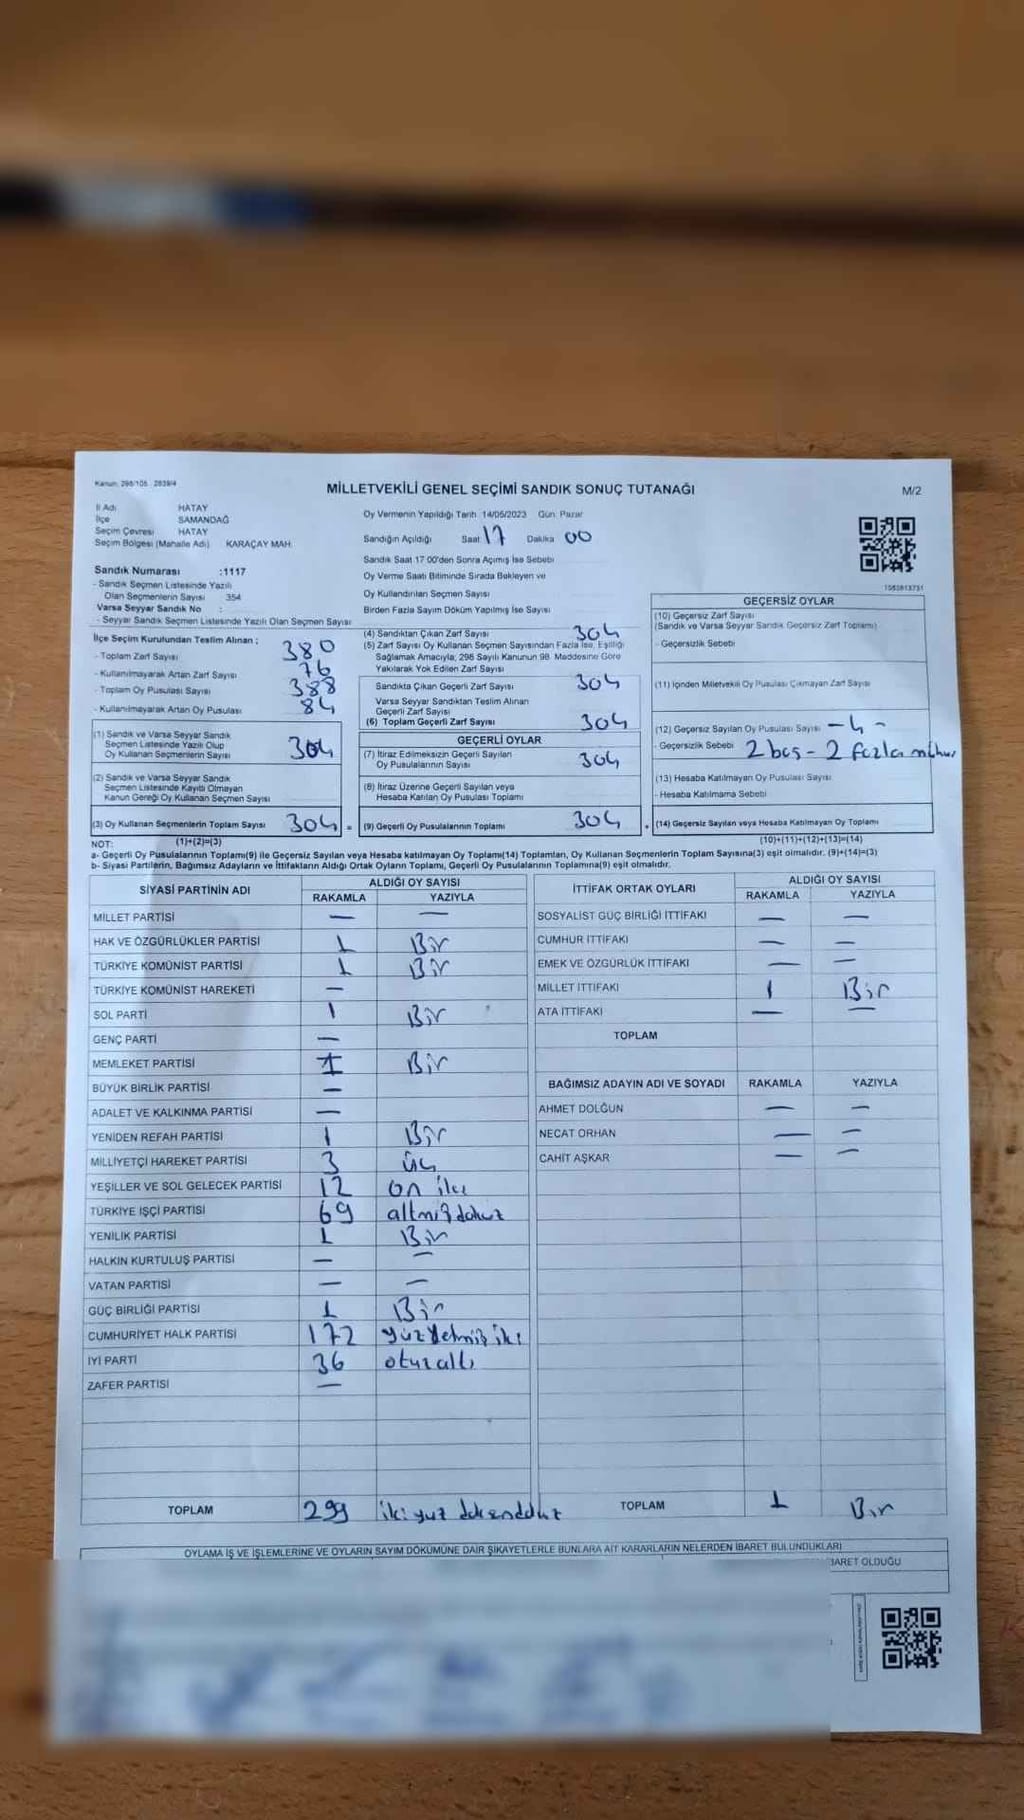 Kanun: 298/105 - 2839/4
MİLLETVEKİLİ GENEL SEÇİMİ SANDIK SONUÇ TUTANAĞI
M/2
İl Adı HATAY
İlçe SAMANDAĞ
Seçim Çevresi HATAY
Seçim Bölgesi (Mahalle Adı) KARAÇAY MAH.
Oy Vermenin Yapıldığı Tarih 14/05/2023 Gün: Pazar
Sandığın Açıldığı Saat 17 Dakika 00
Sandık Saat 17 00'den Sonra Açımış İse Sebebi
Oy Verme Saati Bitiminde Sırada Bekleyen ve
Oy Kullandırılan Seçmen Sayısı
Birden Fazla Sayım Döküm Yapılmış İse Sayısı
Sandık Numarası :1117
- Sandık Seçmen Listesinde Yazılı
Olan Seçmenlerin Sayısı 354
Varsa Seyyar Sandık No :
- Seyyar Sandık Seçmen Listesinde Yazılı Olan Seçmen Sayısı
1583813731
İlçe Seçim Kurulundan Teslim Alınan ;
- Toplam Zarf Sayısı 380
- Kullanılmayarak Artan Zarf Sayısı 76
- Toplam Oy Pusulası Sayısı 388
- Kullanılmayarak Artan Oy Pusulası 84
(1) Sandık ve Varsa Seyyar Sandık
Seçmen Listesinde Yazılı Olup
Oy Kullanan Seçmenlerin Sayısı 304
(2) Sandık ve Varsa Seyyar Sandık
Seçmen Listesinde Kayıtlı Olmayan
Kanun Gereği Oy Kullanan Seçmen Sayısı
(3) Oy Kullanan Seçmenlerin Toplam Sayısı 304 =
(1)+(2)=(3)
(4) Sandıktan Çıkan Zarf Sayısı 304
(5) Zarf Sayısı Oy Kullanan Seçmen Sayısından Fazla İse, Eşitliği
Sağlamak Amacıyla; 298 Sayılı Kanunun 98. Maddesine Göre
Yakılarak Yok Edilen Zarf Sayısı
Sandıkta Çıkan Geçerli Zarf Sayısı 304
Varsa Seyyar Sandıktan Teslim Alınan
Geçerli Zarf Sayısı
(6) Toplam Geçerli Zarf Sayısı 304
GEÇERLİ OYLAR
(7) İtiraz Edilmeksizin Geçerli Sayılan
Oy Pusulalarının Sayısı 304
(8) İtiraz Üzerine Geçerli Sayılan veya
Hesaba Katılan Oy Pusulası Toplamı
(9) Geçerli Oy Pusulalarının Toplamı 304 +
GEÇERSİZ OYLAR
(10) Geçersiz Zarf Sayısı
(Sandık ve Varsa Seyyar Sandık Geçersiz Zarf Toplamı)
- Geçersizlik Sebebi
(11) İçinden Milletvekili Oy Pusulası Çıkmayan Zarf Sayısı
(12) Geçersiz Sayılan Oy Pusulası Sayısı - 4 -
- Geçersizlik Sebebi 2 boş - 2 fazla mühür
(13) Hesaba Katılmayan Oy Pusulası Sayısı
- Hesaba Katılmama Sebebi
(14) Geçersiz Sayılan veya Hesaba Katılmayan Oy Toplamı
(10)+(11)+(12)+(13)=(14)
NOT:
a- Geçerli Oy Pusulalarının Toplamı(9) ile Geçersiz Sayılan veya Hesaba katılmayan Oy Toplamı(14) Toplamları, Oy Kullanan Seçmenlerin Toplam Sayısına(3) eşit olmalıdır. (9)+(14)=(3)
b- Siyasi Partilerin, Bağımsız Adayların ve İttifakların Aldığı Ortak Oyların Toplamı, Geçerli Oy Pusulalarının Toplamına(9) eşit olmalıdır.
SİYASİ PARTİNİN ADI ALDIĞI OY SAYISI
RAKAMLA YAZIYLA
MİLLET PARTİSİ — —
HAK VE ÖZGÜRLÜKLER PARTİSİ 1 Bir
TÜRKİYE KOMÜNİST PARTİSİ 1 Bir
TÜRKİYE KOMÜNİST HAREKETİ —
SOL PARTİ 1 Bir
GENÇ PARTİ —
MEMLEKET PARTİSİ 1 Bir
BÜYÜK BİRLİK PARTİSİ —
ADALET VE KALKINMA PARTİSİ —
YENİDEN REFAH PARTİSİ 1 Bir
MİLLİYETÇİ HAREKET PARTİSİ 3 üç
YEŞİLLER VE SOL GELECEK PARTİSİ 12 on iki
TÜRKİYE İŞÇİ PARTİSİ 69 altmışdokuz
YENİLİK PARTİSİ 1 Bir
HALKIN KURTULUŞ PARTİSİ — —
VATAN PARTİSİ — —
GÜÇ BİRLİĞİ PARTİSİ 1 Bir
CUMHURİYET HALK PARTİSİ 172 yüzyetmiş iki
İYİ PARTİ 36 otuzaltı
ZAFER PARTİSİ —
TOPLAM 299
İTTİFAK ORTAK OYLARI ALDIĞI OY SAYISI
RAKAMLA YAZIYLA
SOSYALİST GÜÇ BİRLİĞİ İTTİFAKI — —
CUMHUR İTTİFAKI — —
EMEK VE ÖZGÜRLÜK İTTİFAKI — —
MİLLET İTTİFAKI 1 Bir
ATA İTTİFAKI — —
TOPLAM
BAĞIMSIZ ADAYIN ADI VE SOYADI RAKAMLA YAZIYLA
AHMET DOLĞUN — —
NECAT ORHAN — —
CAHİT AŞKAR — —
TOPLAM 1 Bir
OYLAMA İŞ VE İŞLEMLERİNE VE OYLARIN SAYIM DÖKÜMÜNE DAİR ŞİKAYETLERLE BUNLARA AİT KARARLARIN NELERDEN İBARET BULUNDUKLARI
İBARET OLDUĞU